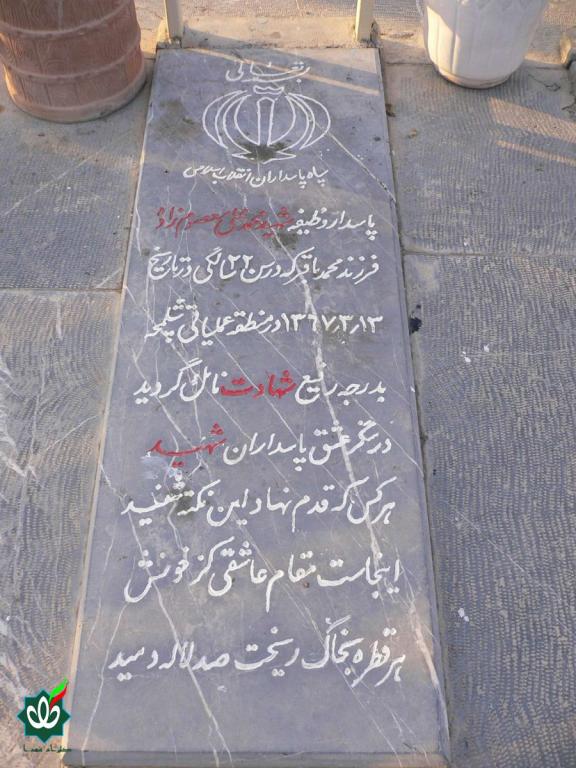 بقائی
سپاه پاسداران انقلاب اسلامی
پاسدار وظیفه شهید محمد علی معصوم زاده
فرزند محمد باقر که در سن ۲۲ سالگی در تاریخ
۱۳۶۷٫۳٫۱۳ در منطقه عملیاتی شلمچه
بدرجه رفیع شهادت نائل گردید
در سنگر عشق پاسداران شهید
هر کس که قدم نهاد این نکته شنید
اینجاست مقام عاشقی کز خونش
هر قطره بخاک ریخت صد لاله دمید